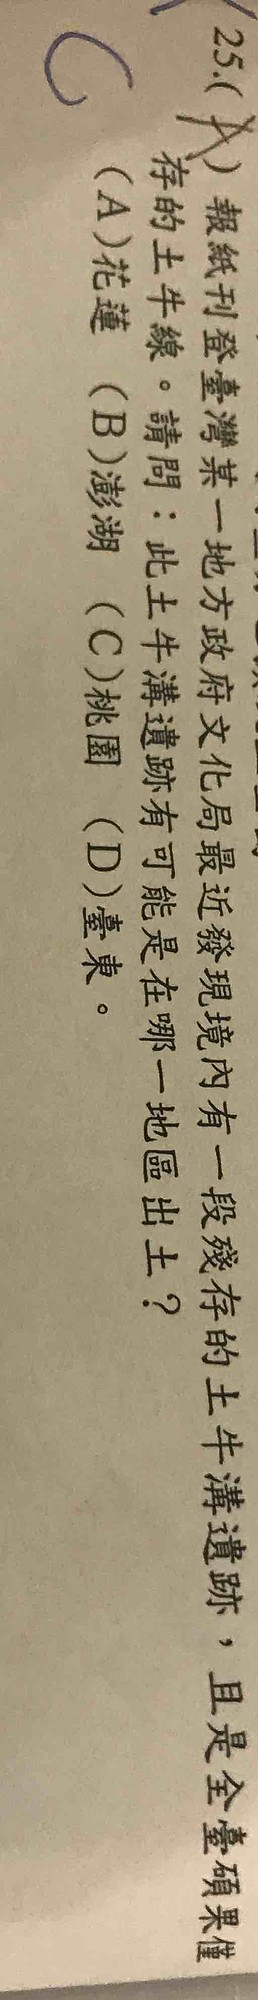 25.(A) 報紙刊登臺灣某一地方政府文化局最近發現境內有一段殘存的土牛溝遺跡，且是全臺碩果僅
存的土牛線。請問：此土牛溝遺跡有可能是在哪一地區出土？
(A)花蓮 (B)澎湖 (C)桃園 (D)臺東。
C